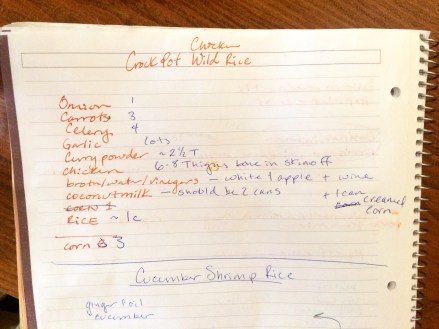 Chicken
Crock Pot Wild Rice
Onion 1
Carrots 3
Celery 4
Garlic lots
Curry powder ~ 2½ T
chicken 6-8 Thighs bone in skin off
broth/water/vinegars - white & apple + wine
coconut milk - should be 2 cans + 1 can creamed corn
RICE ~ 1c
corn 3
Cucumber Shrimp Rice
ginger/oil
cucumber